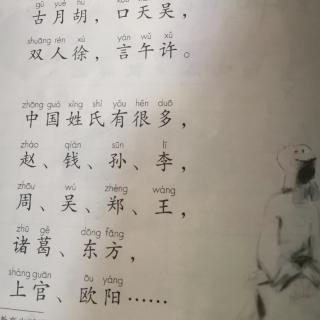 gǔ yuè hú
古月胡，口天吴，
shuāng rén xú yán wǔ xǔ
双人徐，言午许。
zhōng guó xìng shì yǒu hěn duō
中国姓氏有很多，
zhào qián sūn lǐ
赵、钱、孙、李，
zhōu wú zhèng wáng
周、吴、郑、王，
zhū gě dōng fāng
诸葛、东方，
shàng guān ōu yáng
上官、欧阳……